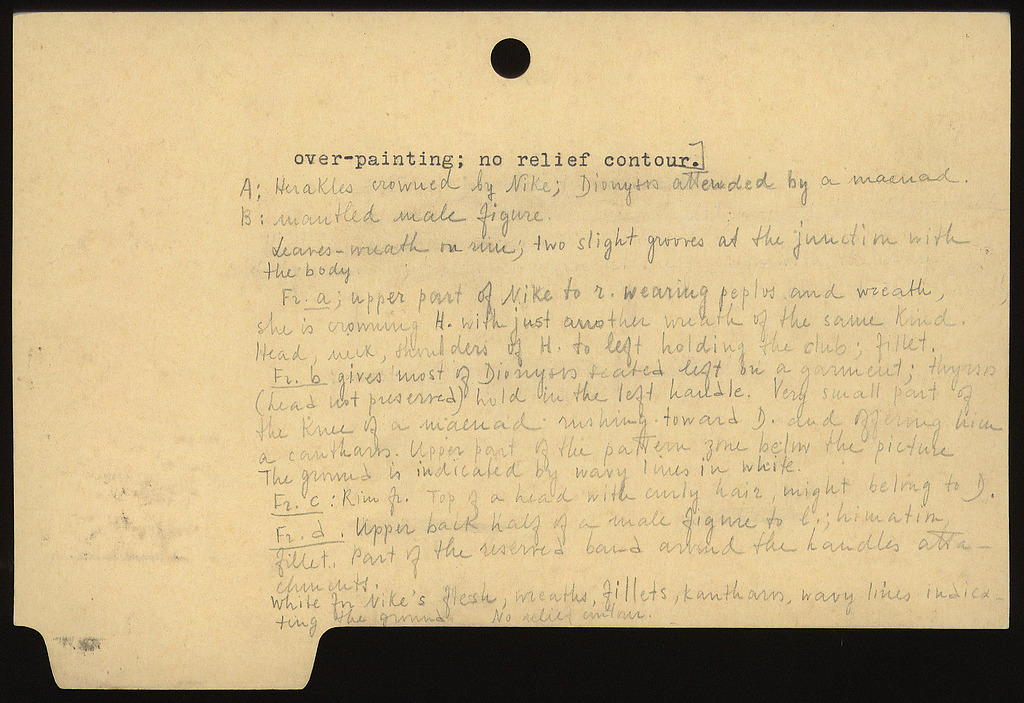 over-painting; no relief contour.]
A: Herakles crowned by Nike; Dionysos attended by a maenad.
B: mantled male figure.
Leaves-wreath on rim; two slight grooves at the junction with
the body
Fr. a; upper part of Nike to r. wearing peplos and wreath,
she is crowning H. with just another wreath of the same kind.
Head, neck, shoulders of H. to left holding the club; fillet.
Fr. b gives most of Dionysos seated left on a garment; thyrsos
(head not preserved) hold in the left handle. Very small part of
the knee of a maenad rushing toward D. and offering him
a cantharos. Upper part of the pattern zone below the picture
The ground is indicated by wavy lines in white.
Fr. c: Rim fr. Top of a head with curly hair, might belong to D.
Fr. d. Upper back half of a male figure to l.; himation,
fillet. Part of the reserved band around the handles atta-
chments.
White for Nike's flesh, wreaths, fillets, kantharos, wavy lines indica-
ting the ground. No relief contour.